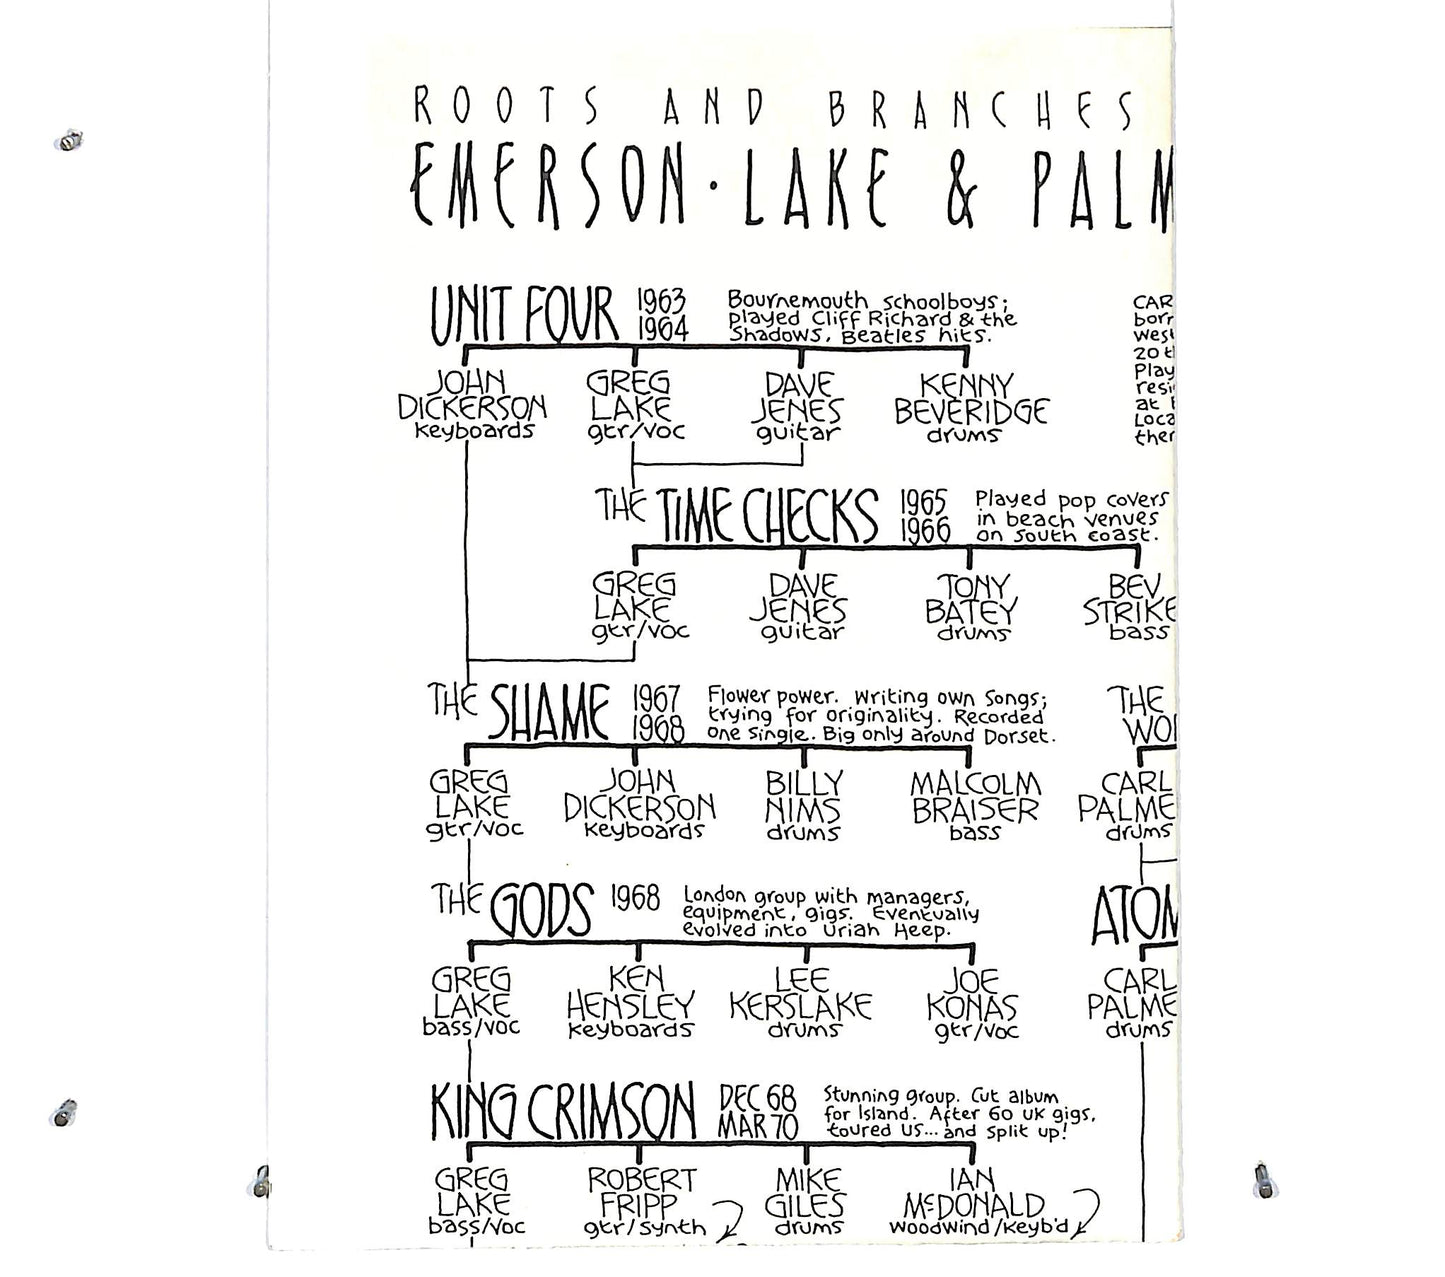 ROOTS AND BRANCHES
EMERSON · LAKE & PALM
UNIT FOUR 1963 1964
Bournemouth schoolboys;
played Cliff Richard & the
Shadows, Beatles hits.
JOHN DICKERSON keyboards
GREG LAKE gtr/voc
DAVE JENES guitar
KENNY BEVERIDGE drums
CAR
borr
west
20 t
Play
resi
at
Loca
ther
THE TIME CHECKS 1965 1966
Played pop covers
in beach venues
on south coast.
GREG LAKE gtr/voc
DAVE JENES guitar
TONY BATEY drums
BEV STRIKE bass
THE SHAME 1967 1968
Flower power. Writing own songs;
trying for originality. Recorded
one single. Big only around Dorset.
GREG LAKE gtr/voc
JOHN DICKERSON keyboards
BILLY NIMS drums
MALCOLM BRAISER bass
THE WO
CARL PALME drums
THE GODS 1968
London group with managers,
equipment, gigs. Eventually
evolved into Uriah Heep.
GREG LAKE bass/voc
KEN HENSLEY keyboards
LEE KERSLAKE drums
JOE KONAS gtr/voc
ATOM
CARL PALME drums
KING CRIMSON DEC 68 MAR 70
Stunning group. Cut album
for Island. After 60 UK gigs,
toured US... and split up!
GREG LAKE bass/voc
ROBERT FRIPP gtr/synth
MIKE GILES drums
IAN McDONALD woodwind/keyb'd